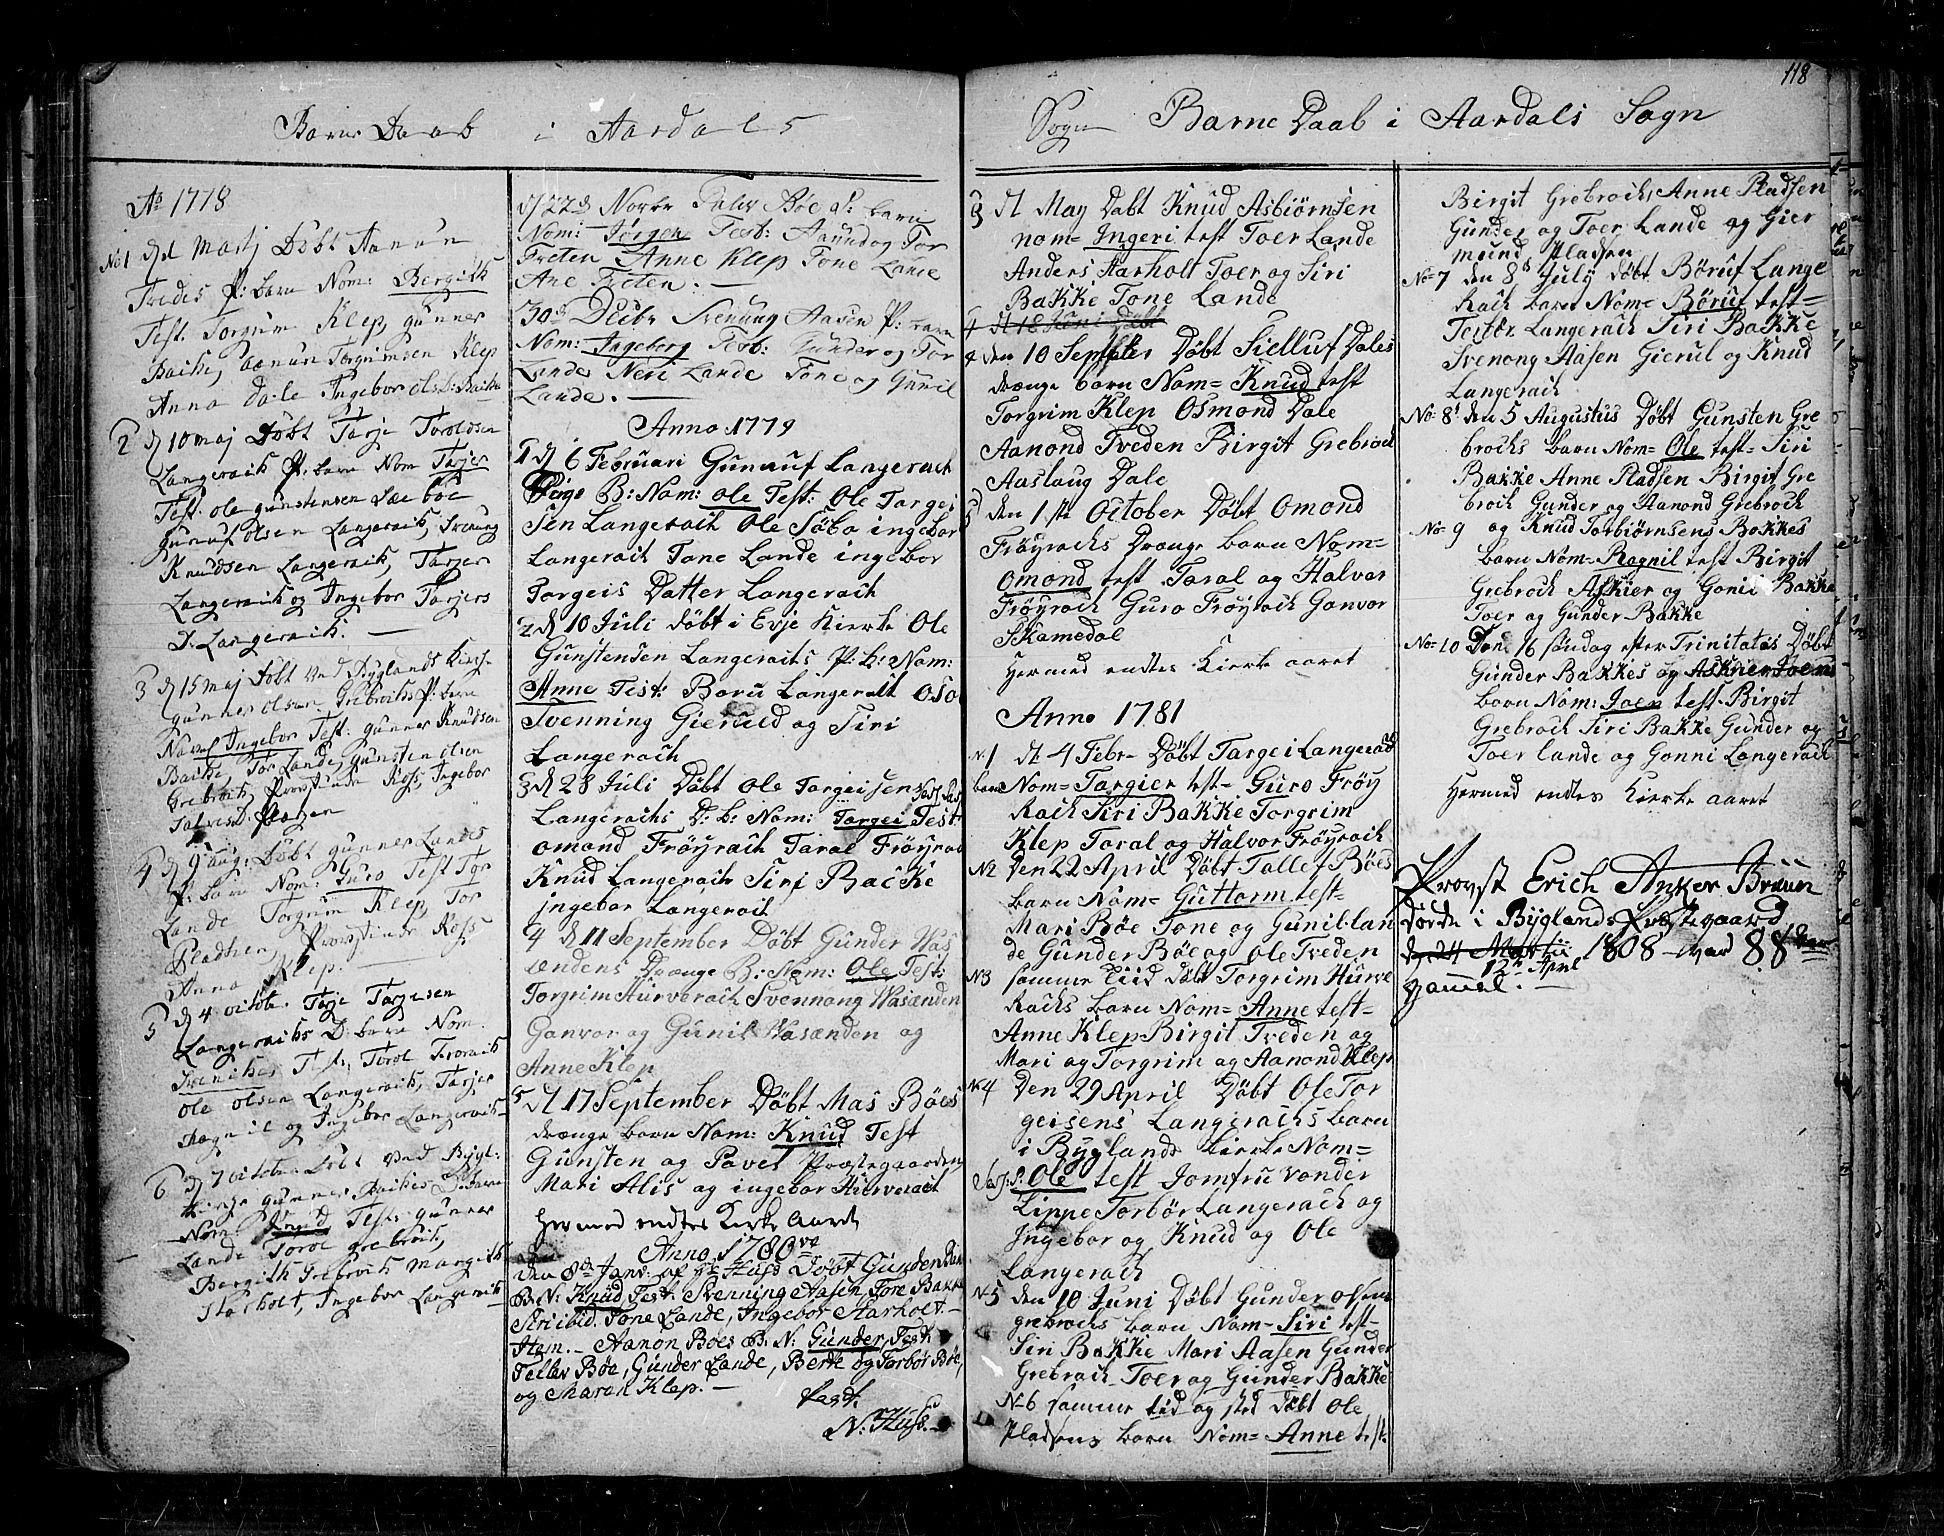 Barne Daab i Aardals
Ao 1778
No 1 d Martj Döbt Aanun
Tvedes P: barn Nom: Bergith
Test. Torgrim Klep, gunner
Anna Dale Ingebor
2 d 10 maj Döbt Tarje Toroldsen
Langeraik P: barn Nom Tarjer
Test: ole gunstensen
gunuf olsen Langeraik, Svenung
Knudsen Langeraik, Tarjer
Langeraik og Ingebor Tarjers
D. Langeraik.
3 d 15 maj Döbt ved Byglands Kirch
gunner olsen Grebroiks P: barn
Navl Ingebor Test: gunner Knudsen
Baikke, Tor Lande, gunsten olsen
Grebroik, Provstinde Ross, Ingebor
4 d 9 aug: Döbt gunner Lande
P: barn Nom: Guro Test Tor
Lande Torgrim Klep, Tor
Pladsen, Provstinde Ross
Anna Klep.
5 d 4 octobr. Tarje Tarjesen
Langeraiks D: barn Nom.
Test: Torol Froraik
ole olsen Langeraik, Tarjer
og Ingebor Langeraik
6 d 7 octobr Döbt ved Bygl:
kirge gunner Baikes D: barn
Nom: Knud Test: gunner
Lande Torol grebroik,
Bergith Grebroik margith
Storholt, Ingebor Langeraik
d 22d Novbr Böe S: barn
Nom: Jörgen Test: Aanund og Tor
Treten Anne Klep Tone Lande
Ane Treten.
30d Decbr Svenung Aasen P: barn
Nom: Ingeborg Test: Gunder og Tor
Lande Neri Lande Tone og Gunil
Lande.
Anno 1779
1 d 6 Februari Gunnuf Langerach
Pige B: Nom: Ole Test: Ole Targei
Sen Langerach Ole Söbö ingebor
Langerach Tone Lande ingebor
Torgeis Datter Langerach
2 d 10 Juli Döbt i Evje Kierke Ole
Gunstensen Langerachs P: B: Nom:
Anne Test: Boru Langerach Oso
Svenning Gieruld og Siri
Langerach
3 d 28 Juli Döbt Ole Torgeisens
Langerachs D: b: Nom: Targei Test:
omond Fröyrach Taral Fröyrac
Knud Langerach Siri Backe
Ingebor Langerach
4 d 11 September Döbt Gunder Was
endens Drænge B: Nom: Ole Test:
Torgrim Hurverach Svennong Wasænden
Ganvor og Gunil Wasænden og
Anne Klep
5 d 17 September Döbt Mas Böes
drænge barn Nom: Knud Test
Gunsten og Pavel Præstegaarden
Mari Alis og ingebor Hurverach
Hermed endtes Kirke Aaret
Anno 1780ve
den 8d Janv: af Hr Huss Döbt Gunder
B: N: Knud Test: Svenning Aasen Tore Bakke
Siri ibid. Tone Lande, Ingebor Starholt.
Item. Aanon Boes B: N: Gunder Test
Tellev Böe, Gunder Lande, Berte og Torbör Böe,
og Maren Klep.
test.
N: Huss.
118
Sogn Barne Daab i Aardals Sogn
3 d May Döbt Knud Asbiörnsen
nom= Ingeri test Toer Lande
Anders Harholt Toer og Siri
Bakke Tone Lande
4 d 18 Juni Döbt
4 den 10 September Döbt Sielluf Dales
drænge barn Nom= Knud test
Torgrim Klep Osmond Dale
Aanond Tveden Birgit Grebroch
Aaslaug Dale
5 den 1ste October Döbt Omond
Fröyrachs Drænge barn Nom=
Omond test Taral og Halvor
Fröyrach Guro Fröyrach Gonvor
Skamedal
Hermed endtes Kierke aaret
Anno 1781
N1 d 4 Febr= Döbt Targei Langerach
barn Nom= Targier test= Guro Fröy
rach Siri Bakke Torgrim
Klep Toral og Halvor Fröyrach
N2 Den 22 April Döbt Tallef Böes
barn Nom= Guttorm test=
Mari Böe Tone og Gunil lan
de Gunder Böe og Ole Tveden
N3 samme tiid Döbt Torgrim Hurve
Rachs barn Nom= Anne test=
Anne Klep Birgit Tveden og
Mari og Torgrim og Aanond Klep
N4 Den 29 April Döbt Ole Tor
geisens Langerachs barn
i Byglands kierke Nom=
Ole test Jomfru vonder
Lippe Torbör Langerach og
Ingebor og Knud og Ole
Langerach
N5 den 10 Juni Döbt Gunder olsens
grebrochs barn Nom= Siri test=
Siri Bakke Mari Aasen Gunder
Grebroch Toer og Gunder Bakke
N6 samme tid og sted Döbt Ole
Pladsens barn Nom= Anne test:
Birgit Grebrochs Anne Pladsen
Gunder og Toer Lande og Gier
mund Pladsen
No= 7 den 8de July Döbt Böruf Lange
Rach barn Nom= Böruf test=
Langerach Siri Bakke
Svenong Aasen Gierul og Knud
Langerach
No= 8 den 5 Augustus Döbt Gunsten Gre
brochs barn Nom= Ole test= Siri
Bakke Anne Pladsen Birgit Gre
broch Gunder og Aanond Grebroch
No= 9 og Knud Torbiörnsens Bakkes
barn Nom= Rognil test Birgit
Grebroch Askier og Gonil Bakke
Toer og Gunder Bakke
No= 10 Den 16 söndag efter Trinitatis Döbt
Gunder Bakkes og Askier Toers
barn Nom: Joen test= Birgit
Grebroch Siri Bakke Gunder og
Toer lande og Gonni Langerach
Hermed endtes Kierke aaret
Provst Erich Anker Bruun
Döde i Byglands Præstegaard
d. 24 Martii 1808 - var 88
12te April
gammel.